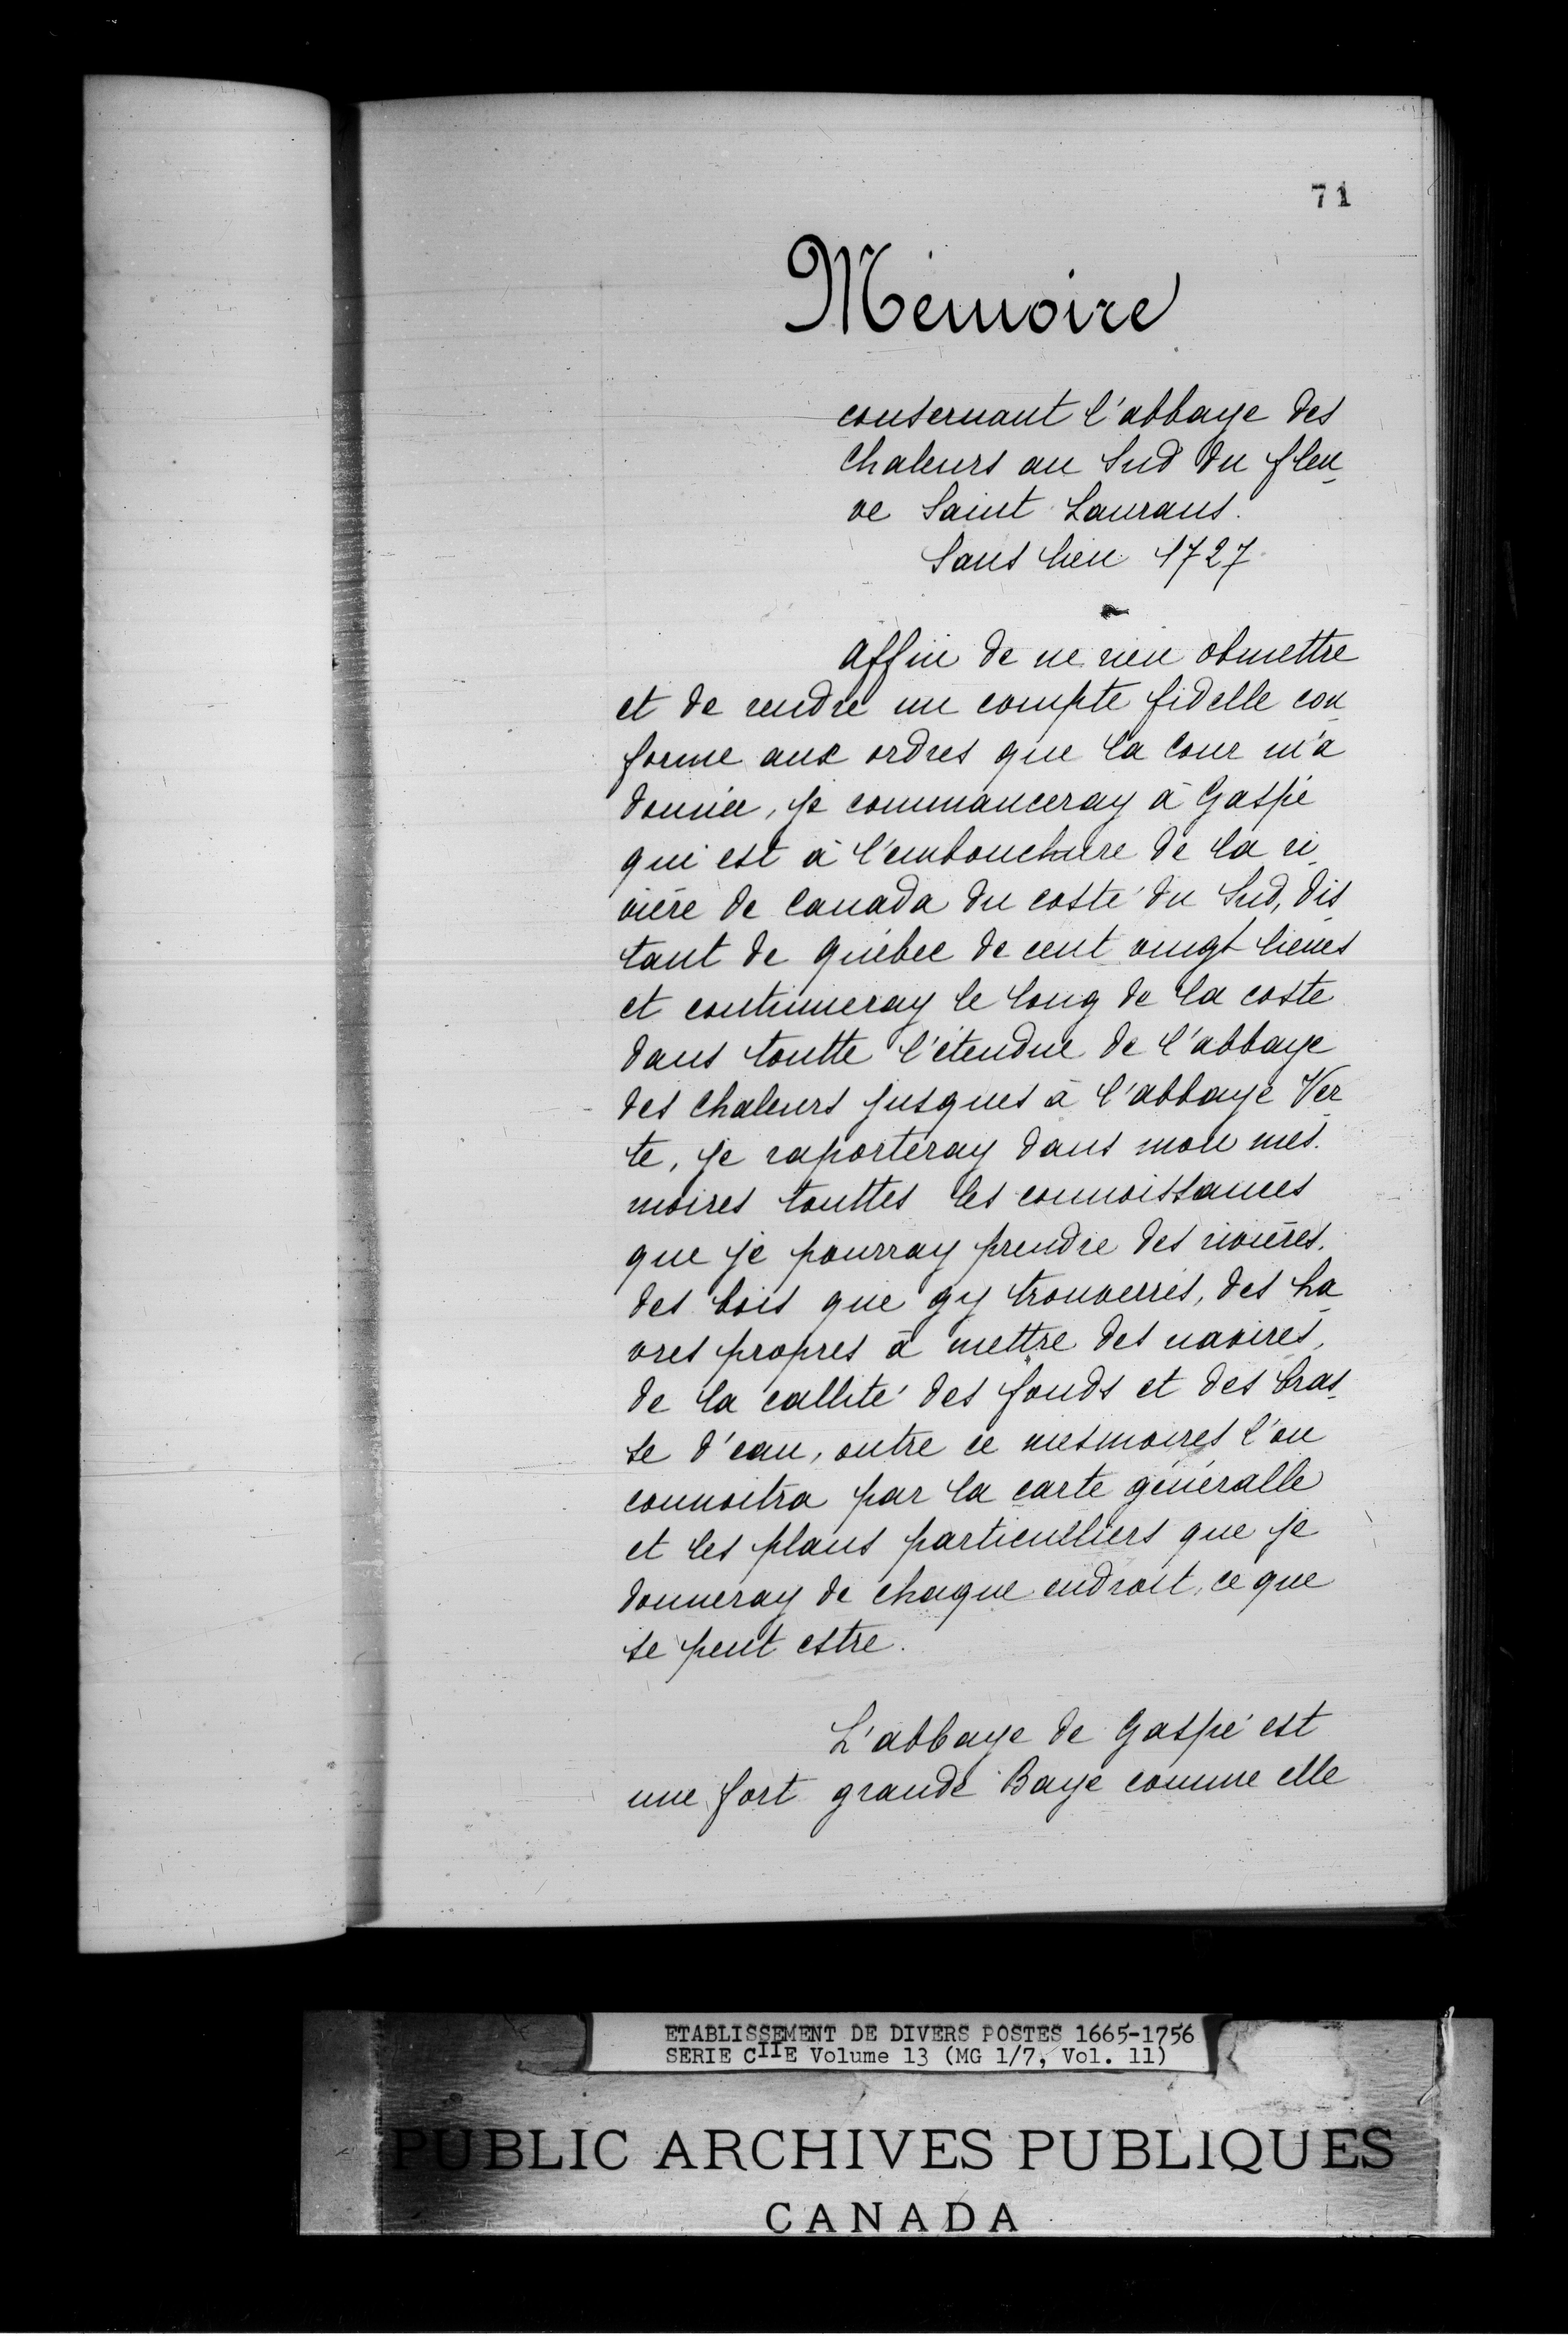 71
Mémoire
conservant l'abbaye des
Chaleurs au Sud du fleu-
ve Saint Laurans.
Sans lieu 1727
Affin de ne rien obmettre
et de rendre un compte fidelle con-
forme aux ordres que la Cour m'a
donnée, je commanceray à Gaspé
qui est à l'embouchure de la ri-
vière de Canada du costé du Sud, dis-
tant de Québec de cent vingt lieues
et continueray le long de la coste
dans toutte l'étendue de l'abbaye
des Chaleurs jusques à l'abbaye Ver-
te, je raporteray dans mon mes-
moires touttes les connoissances
que je pourray prendre des rivières,
des bois que gy trouverrés, des ha-
vres propres à mettre des navires,
de la callité des fonds et des bras-
se d'eau, outre ce mesmoires l'on
connoitra par la carte généralle
et les plans particulliers que je
donneray de chaque endroit, ce que
se peut estre.
L'abbaye de Gaspé est
une fort grande Baye comme elle
ETABLISSEMENT DE DIVERS POSTES 1665-1756
SERIE CIIE Volume 13 (MG 1/7, Vol. 11)
PUBLIC ARCHIVES PUBLIQUES
CANADA